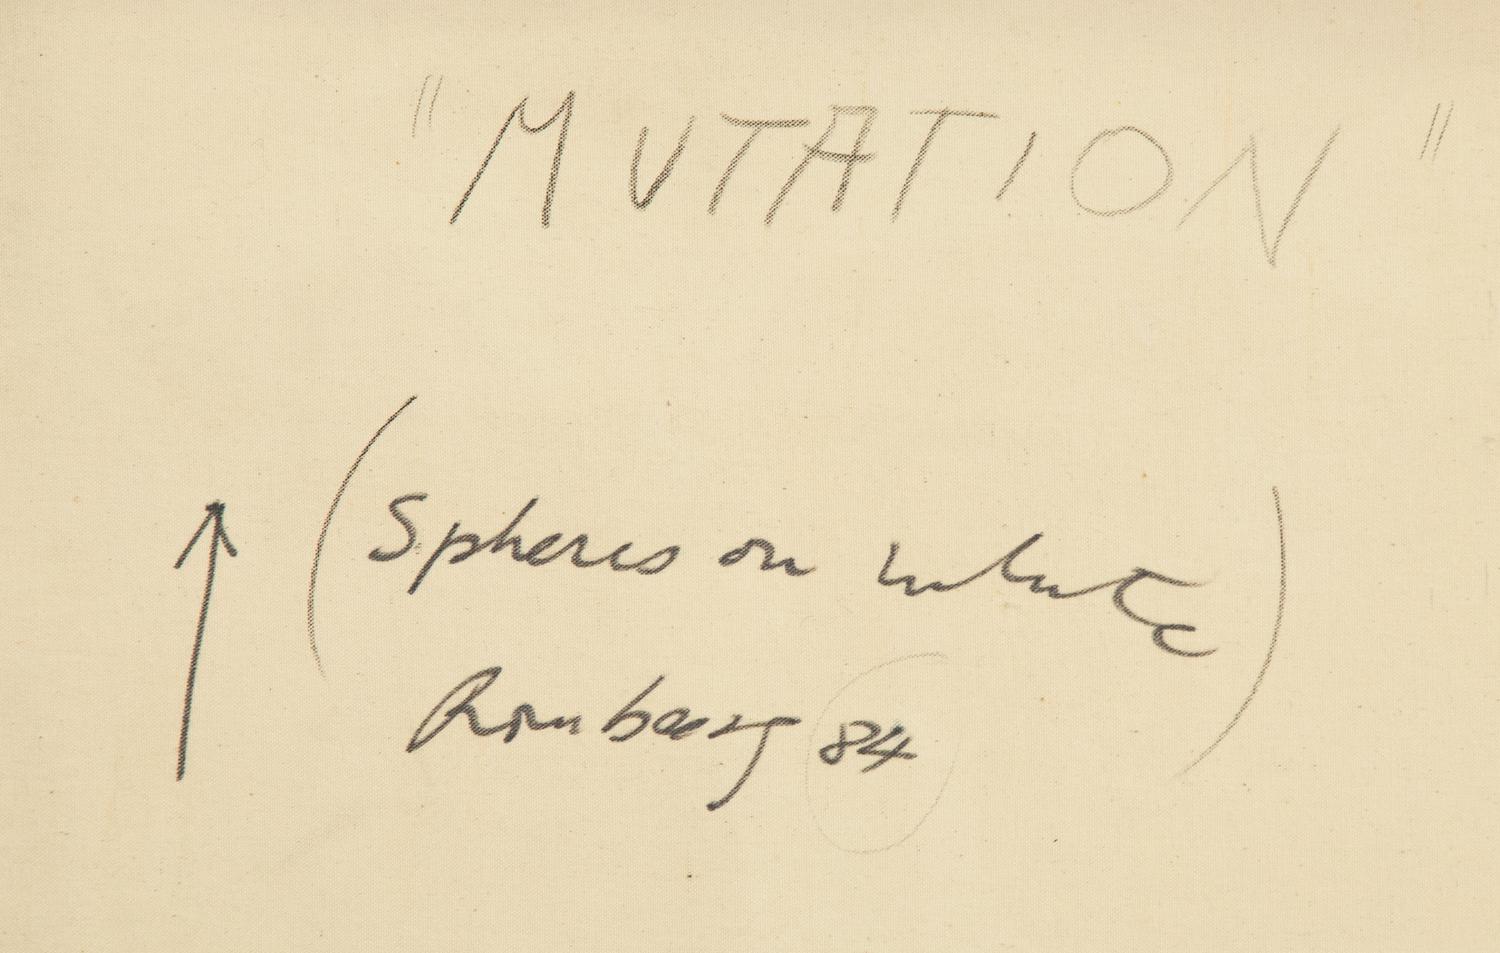 "MUTATION"
(Spheres on white)
Romberg 84